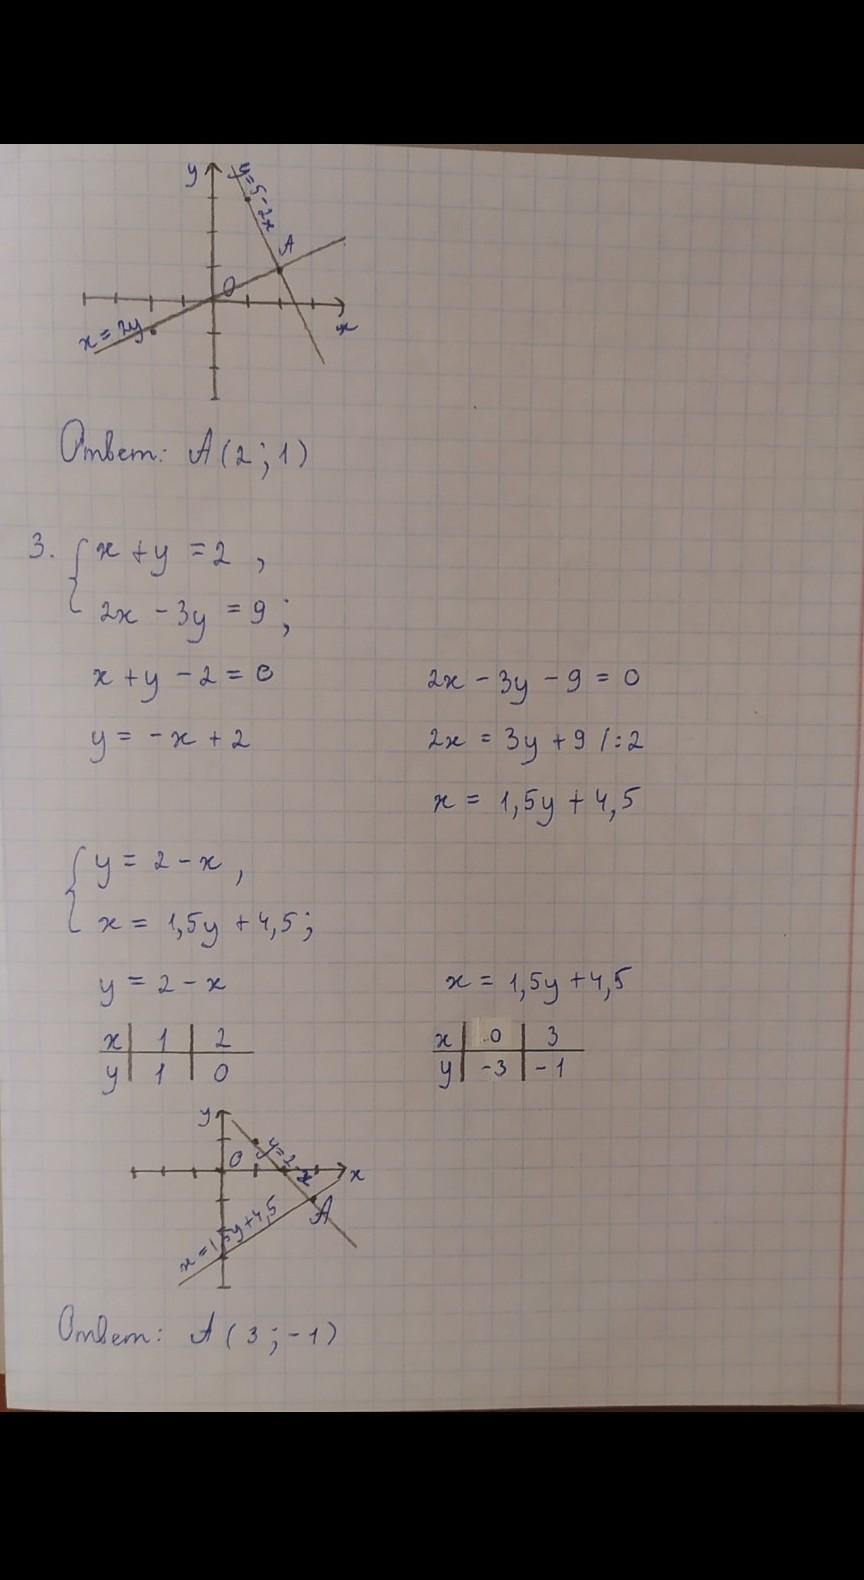 y
y=5-2x
A
O
x
x=2y
Ответ: A(2;1)
3. { x + y = 2 ,
2x - 3y = 9 ;
x + y - 2 = 0 2x - 3y - 9 = 0
y = -x + 2 2x = 3y + 9 /:2
x = 1,5y + 4,5
{ y = 2 - x ,
x = 1,5y + 4,5;
y = 2 - x x = 1,5y + 4,5
x | 1 | 2 x | 0 | 3
y | 1 | 0 y | -3 | -1
y
O
y=2-x
x
A
x=1,5y+4,5
Ответ: A(3;-1)